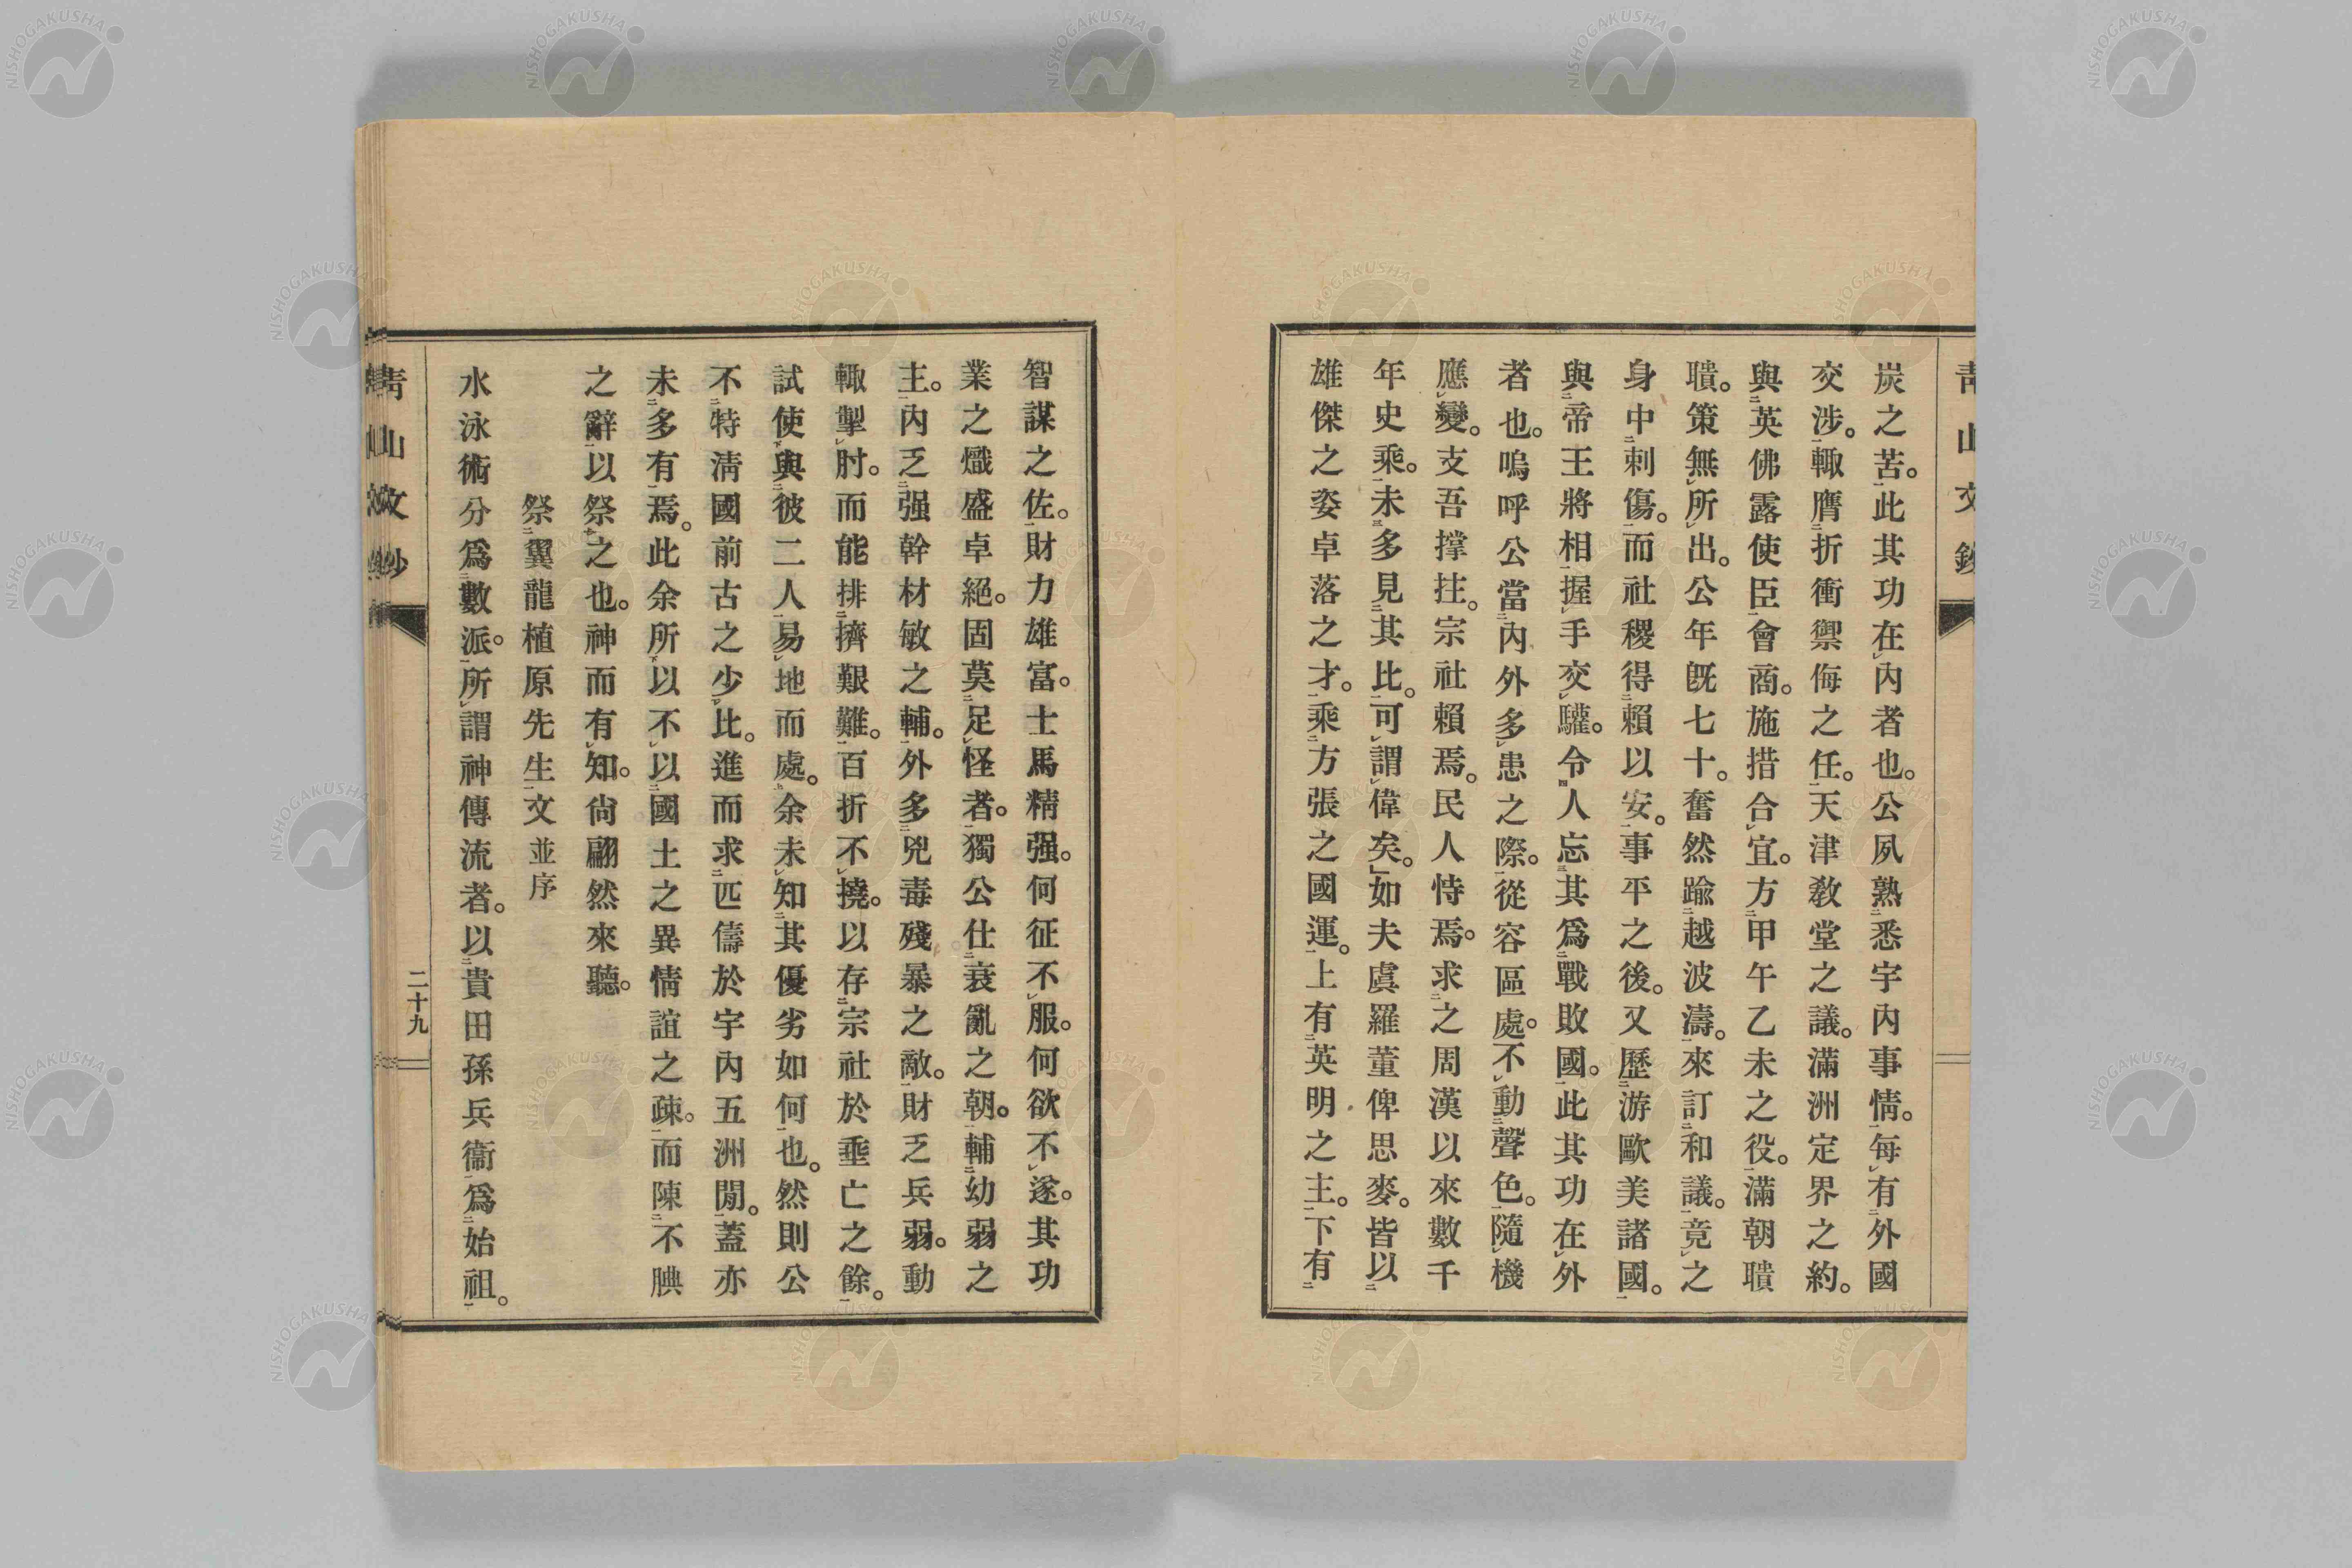 炭之苦。此其功在內者也。公夙熟悉宇內事情。每有外國
交涉。輙膺折衝禦侮之任。天津敎堂之議。滿洲定界之約。
與英佛露使臣會商。施措合宜。方甲午乙未之役。滿朝聵
聵。策無所出。公年旣七十。奮然踰越波濤。來訂和議。竟之
身中刺傷。而社稷得賴以安。事平之後。又歷游歐美諸國。
與帝王將相握手交驩。令人忘其爲戰敗國。此其功在外
者也。嗚呼公當內外多患之際。從容區處。不動聲色。隨機
應變。支吾撑拄。宗社賴焉。民人恃焉。求之周漢以來數千
年史乘。未多見其比。可謂偉矣。」如夫虞羅董俾思麥。皆以
雄傑之姿卓落之才。乘方張之國運。上有英明之主。下有
智謀之佐。財力雄富。士馬精强。何征不服。何欲不遂。其功
業之熾盛卓絕。固莫足怪者。獨公仕衰亂之朝。輔幼弱之
主。內乏强幹材敏之輔。外多兇毒殘暴之敵。財乏兵弱。動
輙掣肘。而能排擠艱難。百折不撓。以存宗社於垂亡之餘。
試使與彼二人易地而處。余未知其優劣如何也。然則公
不特淸國前古之少比。進而求匹儔於宇內五洲閒。蓋亦
未多有焉。此余所以不以國土之異情誼之疎。而陳不腆
之辭以祭之也。神而有知。尙翩然來聽。
祭翼龍植原先生文 並序
水泳術分爲數派。所謂神傳流者。以貴田孫兵衞爲始祖。
靑山文鈔
二十九